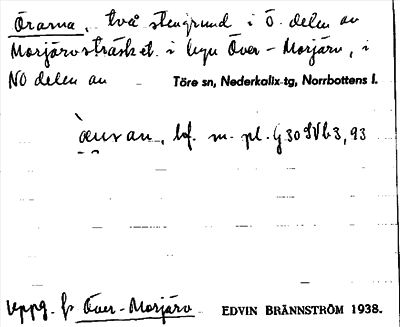 Örarna, två stengrund i Ö. delen av
Morjärvsträsket i byn Över-Morjärv, i
NO delen av Töre sn, Nederkalix tg, Norrbottens l.
bf. m. pl. G30SVb3, 93
Uppg. fr Över-Morjärv EDVIN BRÄNNSTRÖM 1938.